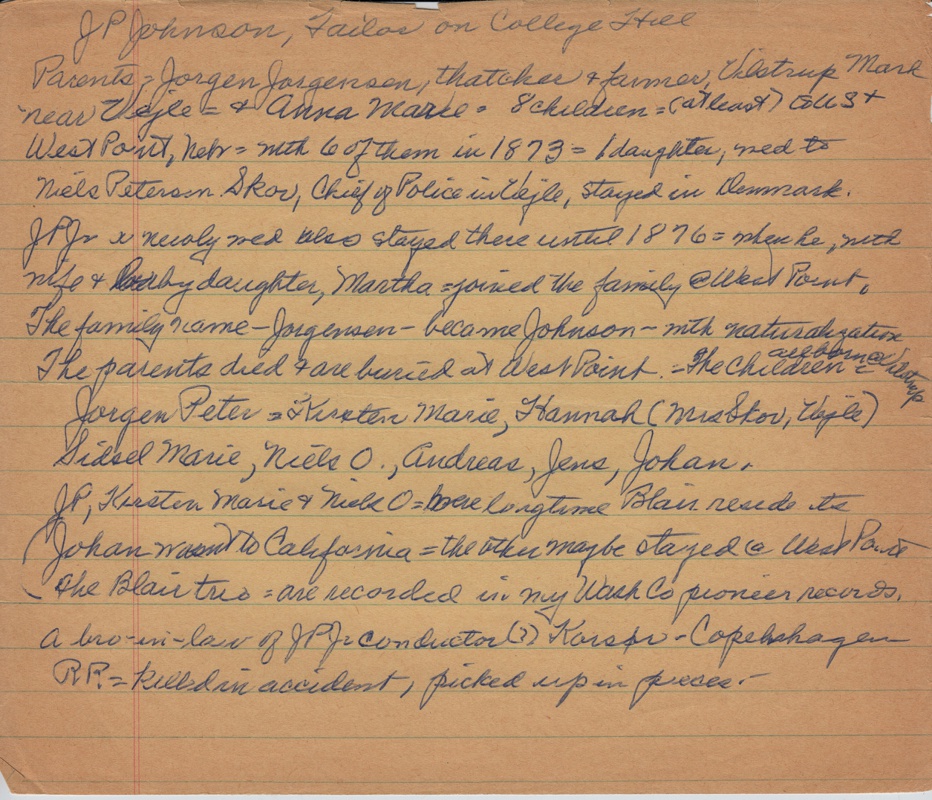 JP Johnson, Tailor on College Hill
Parents = Jorgen Jorgensen, thatcher & farmer, Vilstrup Mark
near Vejle = & Anna Marie = 8 children = (at least) to U S +
West Point, Nebr = with 6 of them in 1873 = 1 daughter, wed to
Niels Petersen Skov, Chief of Police in Vejle, stayed in Denmark.
JP Jr x newly wed also stayed there until 1876 = when he, with
wife & baby daughter, Martha = joined the family @ West Point.
The family name - Jorgensen - became Johnson - with naturalization
The parents died & are buried at West Point. = The Children = all born @ Vilstrup
Jorgen Peter = Kirsten Marie, Hannah (Mrs Skov, Vejle)
Sidsel Marie, Niels O., Andreas, Jens, Johan.
JP, Kirsten Marie & Niels O = were longtime Blair residents
(Johan went to California = the other maybe stayed @ West Point
(the Blair trio = are recorded in my Wash Co pioneer records.
A bro-in-law of JP Jr conductor (?) Korsør - Copehshagen
RR = killed in accident, picked up in pieces. -